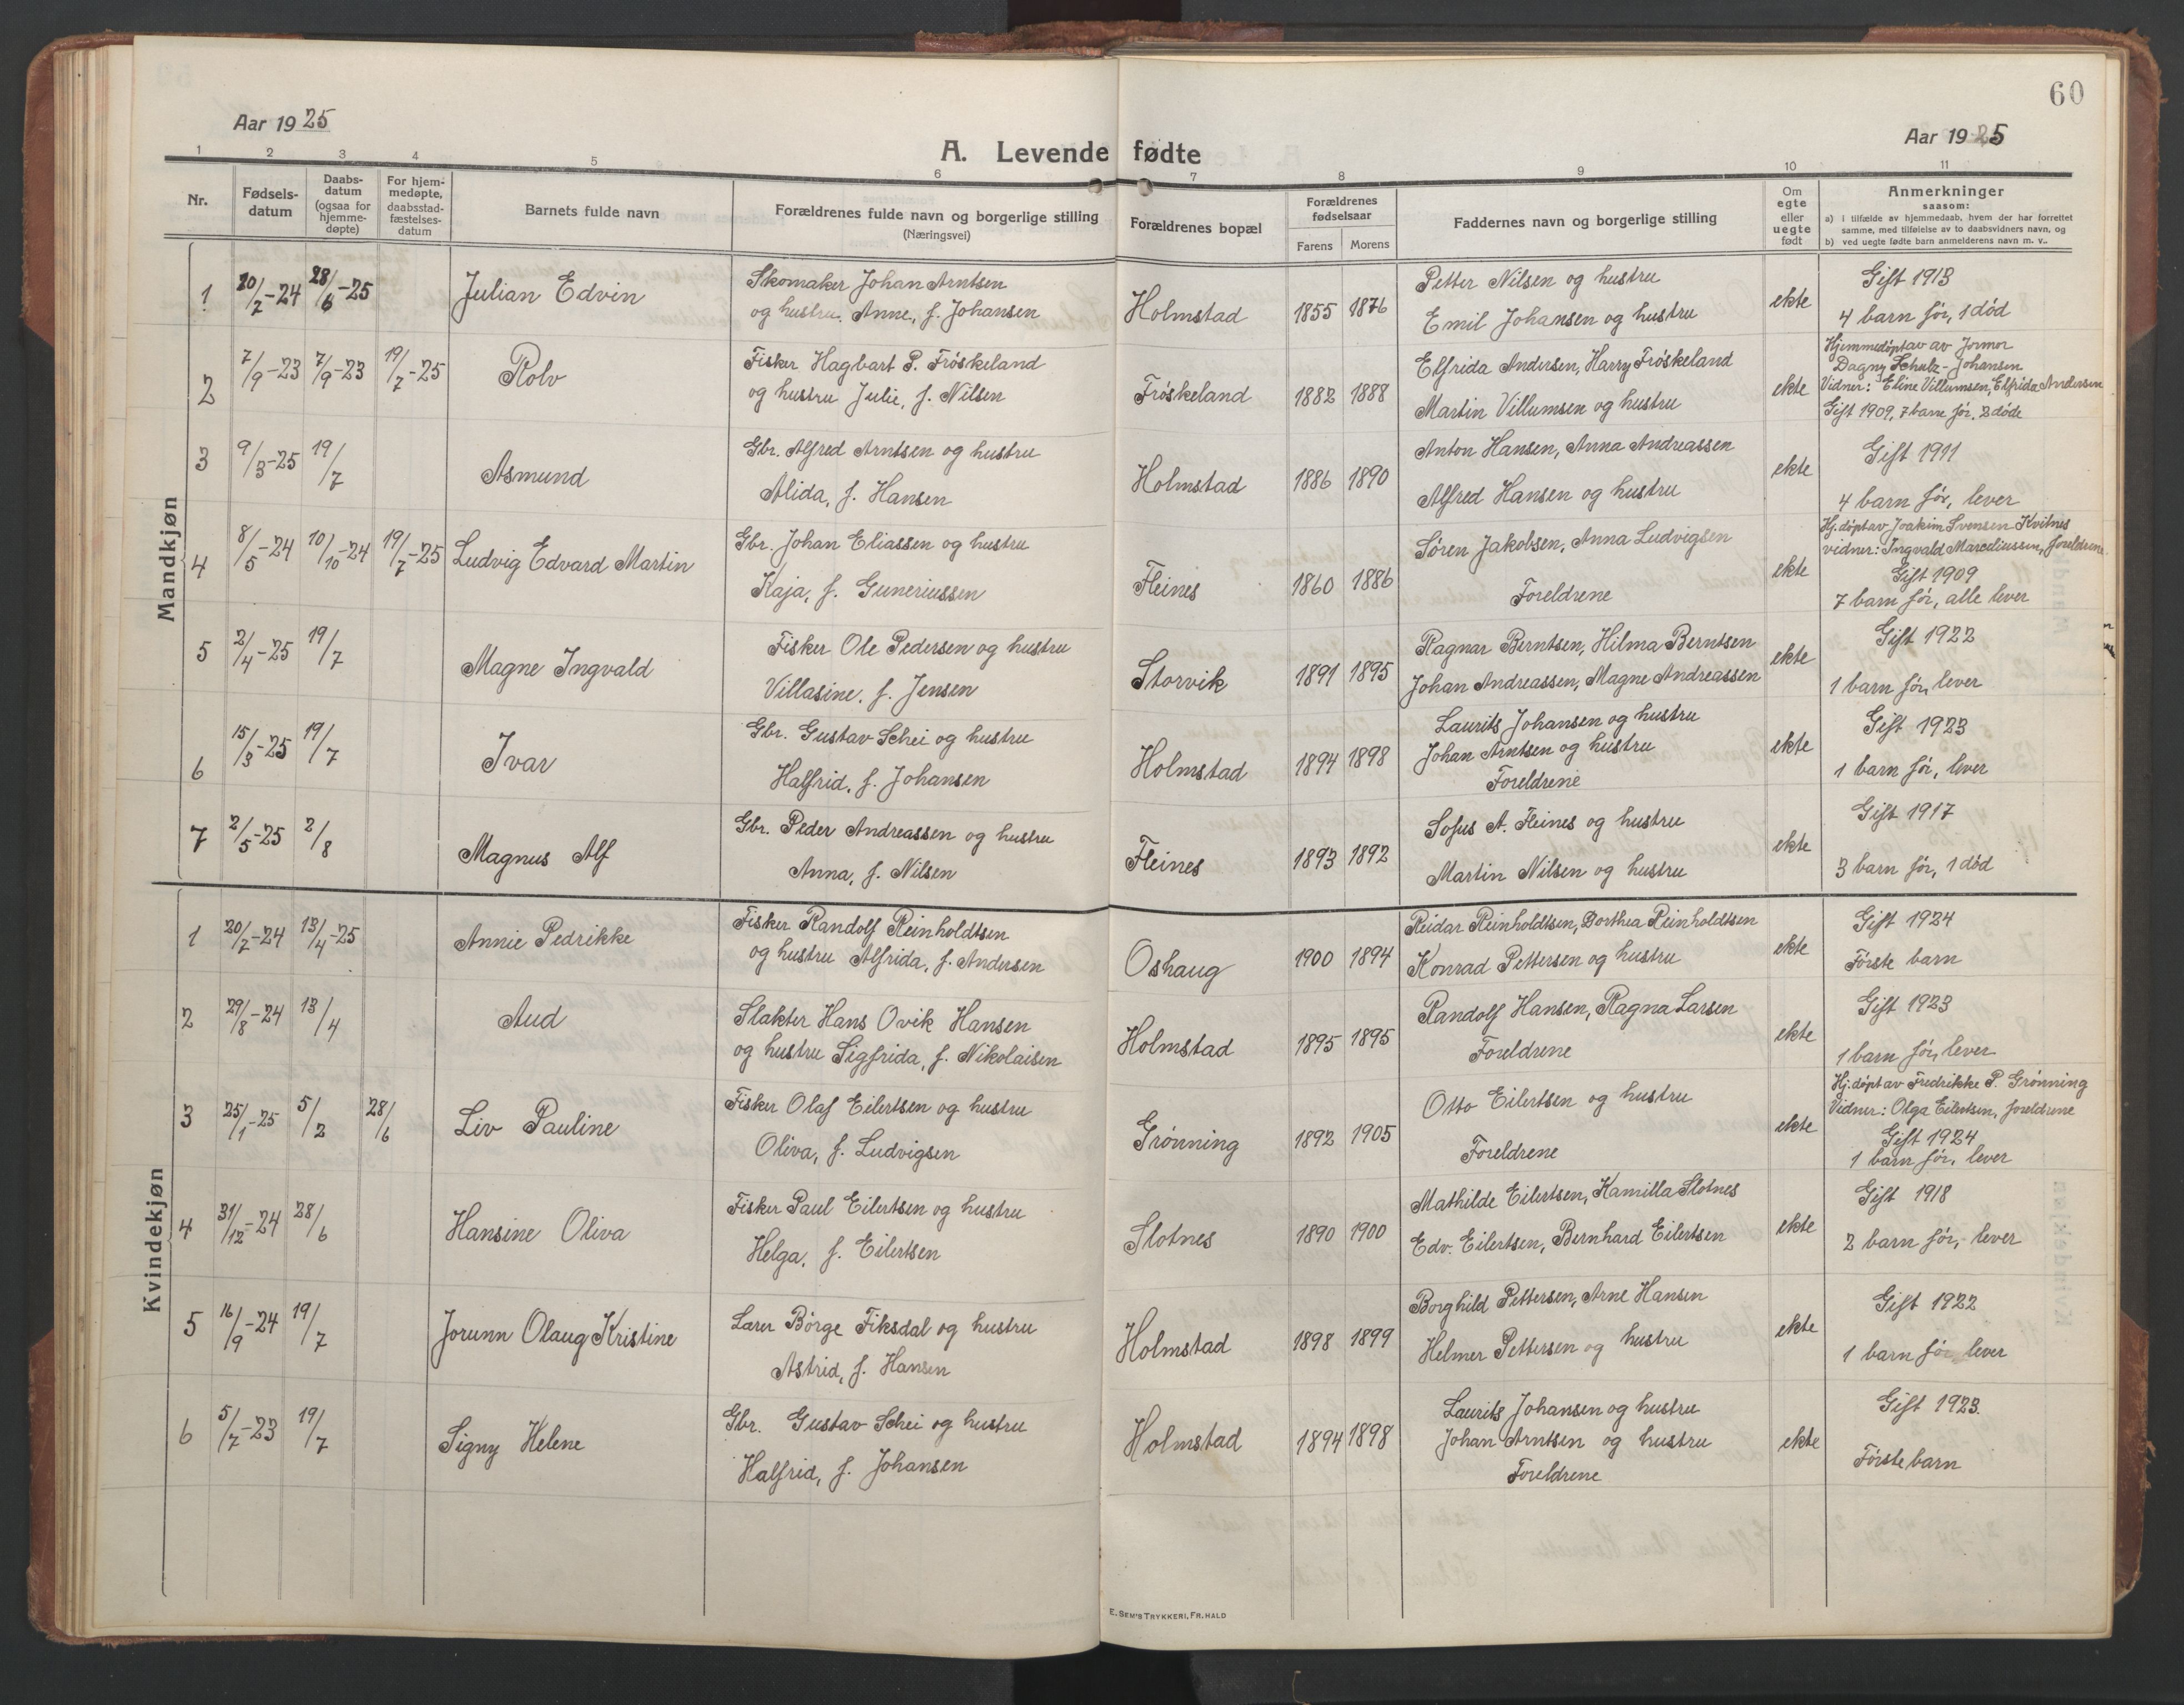 60
Aar 1925
Aar 1925
A. Levende fødte
1 2 3 4 5 6 7 8 9 10 11
Nr.
Fødsels-
datum
Daabs-
datum
(ogsaa for
hjemme-
døpte)
For hjem-
medøpte,
daabsstad-
fæstelses-
datum
Barnets fulde navn
Forældrenes fulde navn og borgerlige stilling
(Næringsvei)
Forældrenes bopæl
Forældrenes
fødselsaar
Farens Morens
Faddernes navn og borgerlige stilling
Om
egte
eller
uegte
født
Anmerkninger
saasom:
a) i tilfælde av hjemmedaab, hvem der har forrettet
samme, med tilføielse av to daabsvidners navn, og
b) ved uegte fødte barn anmelderens navn m. v..
Mandkjøn
1 20/7-24 28/6-25 Julian Edvin
Skomaker Johan Arntsen
og hustru Anne, f. Johansen
Holmstad 1855 1876
Petter Nilsen og hustru
Emil Johansen og hustru
ekte
Gift 1913
4 barn før, 1 død
2 7/9-23 7/9-23 19/7-25 Rolv
Fisker Hagbart P. Frøskeland
og hustru Julie, f. Nilsen
Frøskeland 1882 1888
Elfrida Andersen, Harry Frøskeland
Martin Villumsen og hustru
ekte
Hjemmedøpt av av Jormor
Dagny Schulz-Johansen
Vidner: Eline Villumsen, Elfrida Andersen
Gift 1909, 7 barn før. 2 døde
3 9/3-25 19/7 Asmund
Gbr. Alfred Arntsen og hustru
Alida, f. Hansen
Holmstad 1886 1890
Anton Hansen, Anna Andreassen
Alfred Hansen og hustru
ekte
Gift 1911
4 barn før, lever
4 8/5-24 10/10-24 19/7-25 Ludvig Edvard Martin
Gbr. Johan Eliassen og hustru
Kaja, f. Guneriussen
Fleines 1860 1886
Søren Jakobsen, Anna Ludvigsen
Foreldrene
ekte
Hj.døpt av Joakim Svensen Kvitnes
vidner: Ingvald Marceliussen, foreldrene
Gift 1909
7 barn før, alle lever
5 2/4-25 19/7 Magne Ingvald
Fisker Ole Pedersen og hustru
Villasine, f. Jensen
Storvik 1891 1895
Ragnar Berntsen, Hilma Berntsen
Johan Andreassen, Magne Andreassen
ekte
Gift 1922
1 barn før, lever
6 15/3-25 19/7 Ivar
Gbr. Gustav Schei og hustru
Halfrid, f. Johansen
Holmstad 1894 1898
Laurits Johansen og hustru
Johan Arntsen og hustru
Foreldrene
ekte
Gift 1923
1 barn før, lever
7 2/5-25 2/8 Magnus Alf
Gbr. Peder Andreassen og hustru
Anna, f. Nilsen
Fleines 1893 1892
Sofus A. Fleines og hustru
Martin Nilsen og hustru
ekte
Gift 1917
3 barn før, 1 død
Kvindekjøn
1 20/7-24 13/4-25 Annie Pedrikke
Fisker Randolf Reinholdtsen
og hustru Alfrida, f. Andersen
Oshaug 1900 1894
Reidar Reinholdtsen, Dorthea Reinholdtsen
Konrad Pettersen og hustru
ekte
Gift 1924
Første barn
2 29/8-24 13/4 Aud
Slakter Hans Ovik Hansen
og hustru Sigfrida, f. Nikolaisen
Holmstad 1895 1895
Randolf Hansen, Ragna Larsen
Foreldrene
ekte
Gift 1923
1 barn før, lever
3 25/1-25 5/2 28/6 Liv Pauline
Fisker Olaf Eilertsen og hustru
Oliva, f. Ludvigsen
Grønning 1892 1905
Otto Eilertsen og hustru
Foreldrene
ekte
Hj.døpt av Fredrikke P. Grønning
Vidner: Olga Eilertsen, foreldrene
Gift 1924
1 barn før, lever
4 31/12-24 28/6 Hansine Oliva
Fisker Paul Eilertsen og hustru
Helga, f. Eilertsen
Slotnes 1890 1900
Mathilde Eilertsen, Kamilla Slotnes
Edv. Eilertsen, Bernhard Eilertsen
ekte
Gift 1918
2 barn før, lever
5 16/9-24 19/7 Jorunn Olaug Kristine
Lærer Børge Fiksdal og hustru
Astrid, f. Hansen
Holmstad 1898 1899
Borghild Pettersen, Arne Hansen
Helmer Pettersen og hustru
ekte
Gift 1922
1 barn før lever
6 5/7-23 19/7 Signy Helene
Gbr. Gustav Schei og hustru
Halfrid, f. Johansen
Holmstad 1894 1898
Laurits Johansen og hustru
Johan Arntsen og hustru
Foreldrene
ekte
Gift 1923.
Første barn
E. SEM'S TRYKKERI, FR. HALD